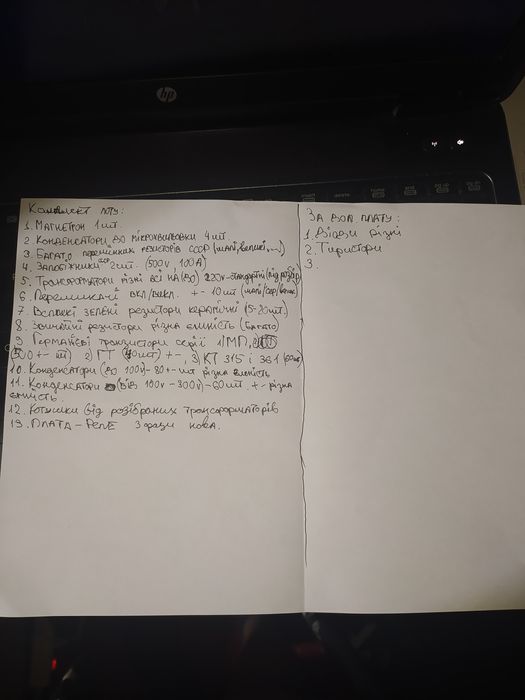 hp
Комплект лоту:
1. Магнетрон 1 шт.
2 Конденсатори до мікрохвильовки 4 шт
3. Багато перемінних резисторів СССР (малі, великі, ...)
4. Запобіжники 2 шт. (500v 100A)
5. Трансформатори різні всі на (до) 220v-стандартні (під розбір)
6. Перемикачі вкл/викл. +- 10 шт (малі/сер/велик)
7. Великі зелені резистори керамічні (15-20шт.)
8. Звичайні резистори різна ємність (Багато)
9 Германієві транзистори серії 1) МП,
(500 +- шт) 2) ГТ (40шт) +-, 3) КТ 315 і 361
10. Конденсатори (до 100v)- 80+- шт різна ємність
11. Конденсатори від 100v-300v)-60шт. +- різна
ємність.
12. Котушки від розібраних трансформаторів
13. Плата-Реле 3 фази нова.
За доп. плату:
1. Діоди різні
2. Тиристори
3.